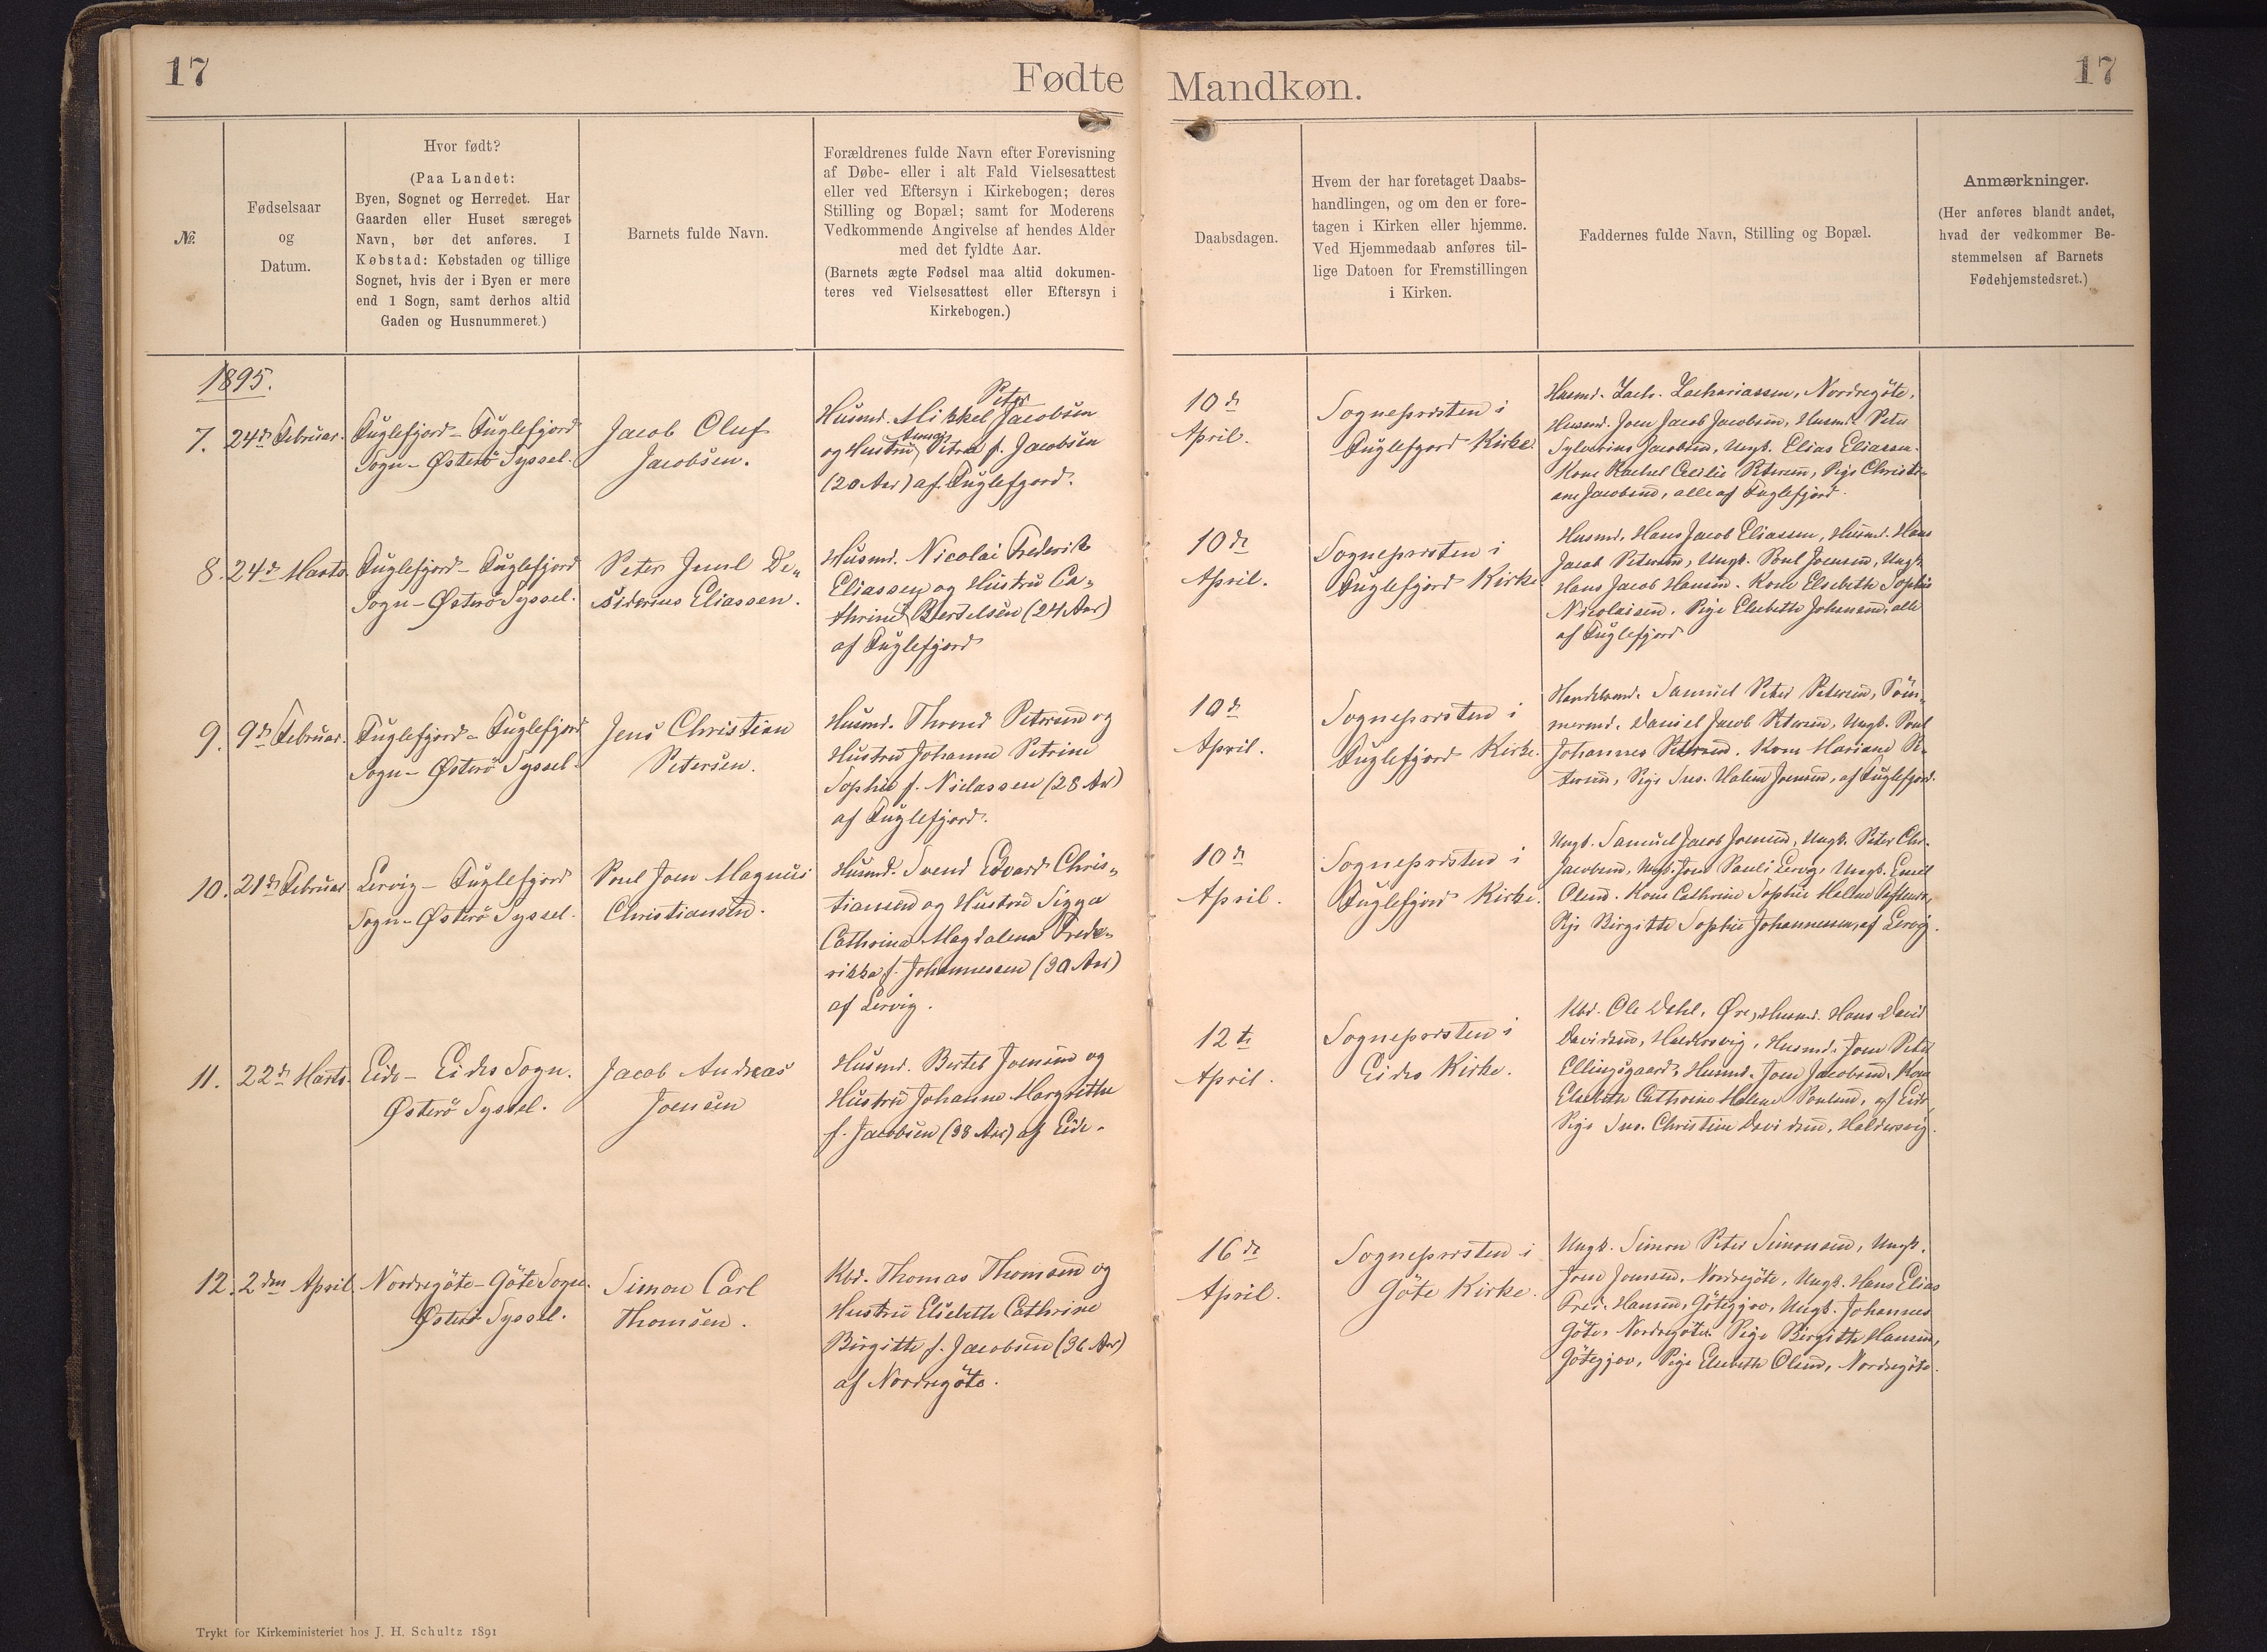 17
Fødte
Mandkøn.
17
№.
Fødselsaar
og
Datum.
Hvor født?
(Paa Landet:
Byen, Sognet og Herredet. Har
Gaarden eller Huset særeget
Navn, bør det anføres. I
Købstad: Købstaden og tillige
Sognet, hvis der i Byen er mere
end 1 Sogn, samt derhos altid
Gaden og Husnummeret.)
Barnets fulde Navn.
Forældrenes fulde Navn efter Forevisning
af Døbe- eller i alt Fald Vielsesattest
eller ved Eftersyn i Kirkebogen; deres
Stilling og Bopæl; samt for Moderens
Vedkommende Angivelse af hendes Alder
med det fyldte Aar.
(Barnets ægte Fødsel maa altid dokumen-
teres ved Vielsesattest eller Eftersyn i
Kirkebogen.)
Daabsdagen.
Hvem der har foretaget Daabs-
handlingen, og om den er fore-
tagen i Kirken eller hjemme.
Ved Hjemmedaab anføres til-
lige Datoen for Fremstillingen
i Kirken.
Faddernes fulde Navn, Stilling og Bopæl.
Anmærkninger.
(Her anføres blandt andet,
hvad der vedkommer Be-
stemmelsen af Barnets
Fødehjemstedsret.)
1895.
7. 24de Februar.
Fuglefjord - Fuglefjord
Sogn - Østerö Syssel.
Jacob Oluf
Jacobsen.
Peter
Husmd. Mikkel Jacobsen
og Hustru Petrea f. Jacobsen
(20 Aar) af Fuglefjord.
10de
April.
Sognepræsten i
Fuglefjord Kirke.
Husmd. Zach. Zachariassen, Nordregöte,
Husmd. Joen Jacob Jacobsen, Husmd. Peter
Sylverius Jacobsen, Ungk. Elias Eliassen.
Kone Rachel Cecilie Petersen, Pige Christi-
ane Jacobsen, alle af Fuglefjord.
8. 24de Marts
Fuglefjord - Fuglefjord
Sogn - Østerö Syssel.
Peter Juul De-
siderius Eliassen.
Husmd. Nicolai Frederik
Eliassen og Hustru Ca-
thrine f. Bertelsen (24 Aar)
af Fuglefjord
10de
April.
Sognepræsten i
Fuglefjord Kirke.
Husmd. Hans Jacob Eliassen, Husmd. Hans
Jacob Petersen, Ungk. Poul Joensen, Ungk.
Hans Jacob Hansen. Kone Elsebeth Sophie
Nicolaisen. Pige Elsebeth Johansen, alle
af Fuglefjord
9. 9de Februar.
Fuglefjord - Fuglefjord
Sogn - Østerö Syssel.
Jens Christian
Petersen.
Husmd. Thrond Petersen og
Hustru Johanne Petrine
Sophie f. Niclassen (28 Aar)
af Fuglefjord.
10de
April.
Sognepræsten i
Fuglefjord Kirke.
Handelsmd. Samuel Peter Petersen, Töm-
mermd. Daniel Jacob Petersen, Ungk. Poul
Johannes Petersen. Kone Mariane Pe-
tersen, Pige Sus. Malene Joensen, af Fuglefjord.
10. 21de Februar
Lervig - Fuglefjord
Sogn - Østerö Syssel.
Poul Joen Magnus
Christiansen.
Husmd. Svend Edvard Chris-
tiansen og Hustru Sigga
Cathrine Magdalena Frede-
rikke f. Johannessen (30 Aar)
af Lervig.
10de
April.
Sognepræsten i
Fuglefjord Kirke.
Ungk. Samuel Jacob Joensen, Ungk. Peter Chr.
Jacobsen, Ungk. Joen Pauli Lervig, Ungk. Emil
Olsen. Kone Cathrine Sophie Helene
Pige Birgitte Sophie Johannessen, af Lervig.
11. 22de Marts
Eide - Eides Sogn.
Østerö Syssel.
Jacob Andreas
Joensen
Husmd. Bertel Joensen og
Hustru Johanne Margrethe
f. Jacobsen (38 Aar) af Eide.
12te
April.
Sognepræsten i
Eides Kirke.
Kbd. Ole Dahl, Øre, Husmd. Hans David
Davidsen, Haldersvig, Husmd. Joen Peter
Ellingsgaard, Husmd. Joen Jacobsen, Kone
Elsebeth Cathrine Malene Poulsen, af Eide,
Pige Sus. Christine Davidsen, Haldersvig.
12. 2den April.
Nordregöte - Göte Sogn.
Østerö Syssel.
Simon Carl
Thomsen.
Kbd. Thomas Thomsen og
Hustru Elsebeth Cathrine
Birgitte f. Jacobsen (36 Aar)
af Nordregöte.
16de
April.
Sognepræsten i
Göte Kirke.
Ungk. Simon Peter Simonsen, Ungk.
Joen Joensen, Nordregöte, Ungk. Hans Elias
Fred. Hansen, Götegjov, Ungk. Johannes
Göte, Nordregöte. Pige Birgitte Hansen,
Götegjov, Pige Elsebeth Olsen, Nordregöte.
Trykt for Kirkeministeriet hos J. H. Schultz 1891